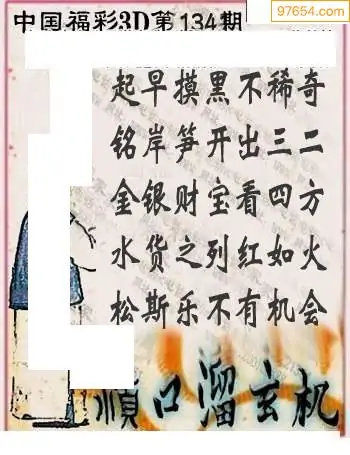 中国福彩3D第134期
97654.com
起早摸黑不稀奇
铭岸笋开出三二
金银财宝看四方
水货之列红如火
松斯乐不有机会
顺口溜玄机